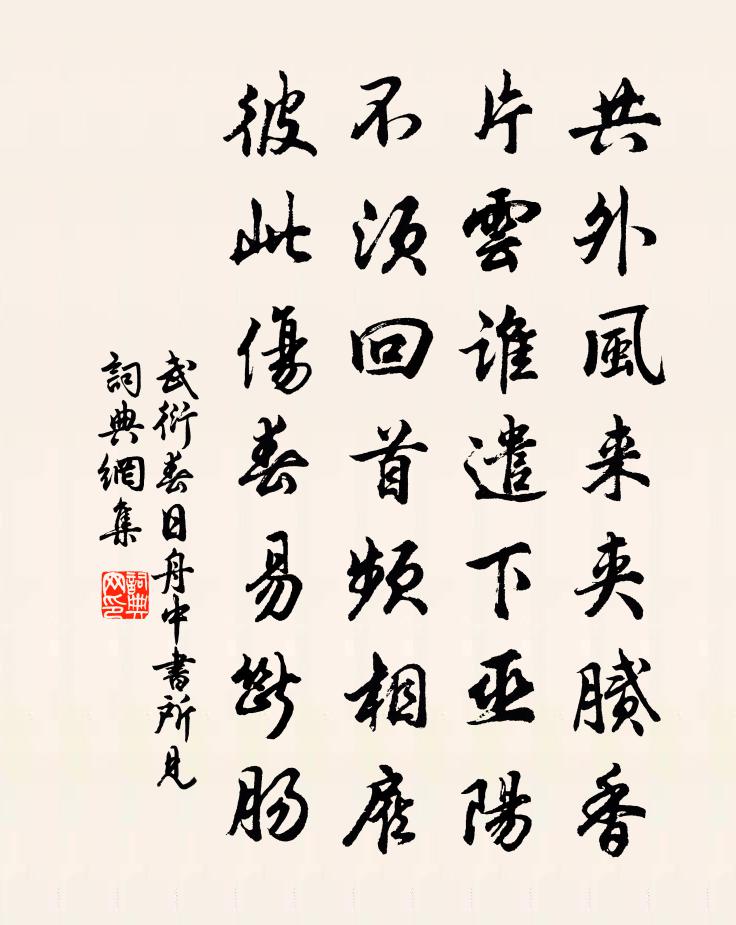 共外風来夾膩香
片雲誰遣下巫陽
不須回首頻相應
彼此傷春易斷腸
武衍春日舟中書所見
詞典網集
詞典
网印